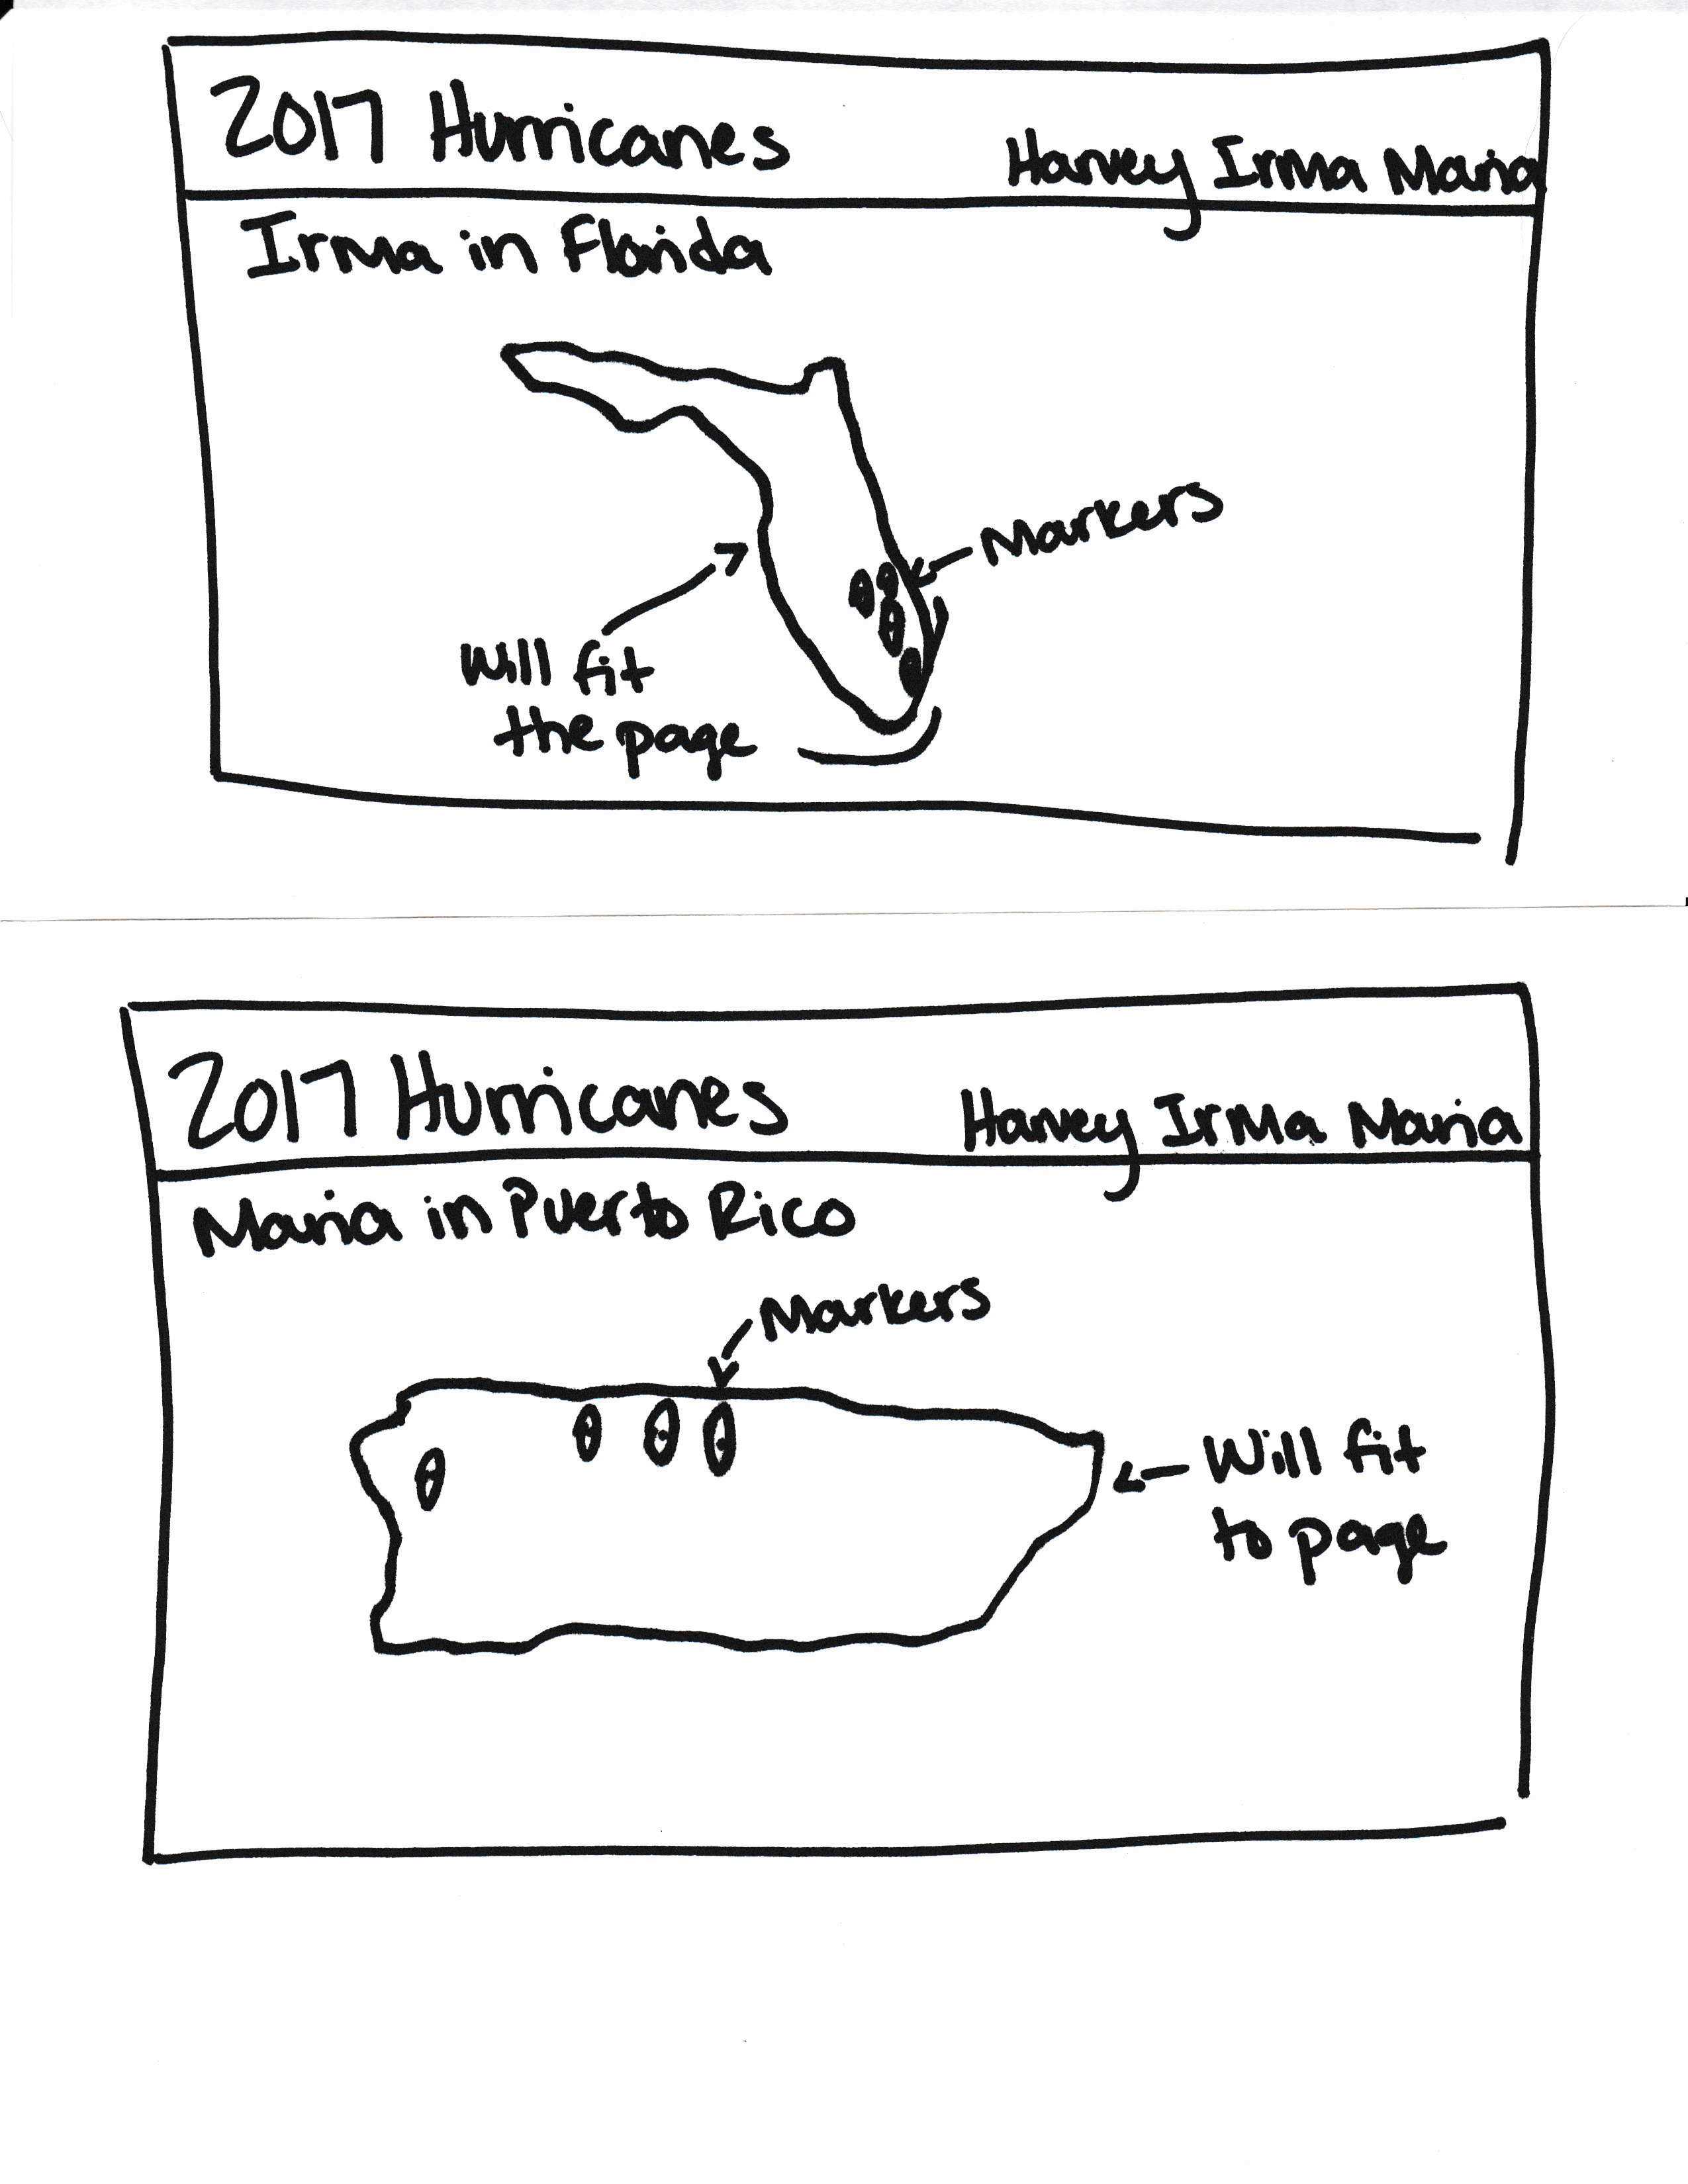 2017 Hurricanes
Harvey Irma Maria
Irma in Florida
Markers
Will fit
the page
2017 Hurricanes
Harvey Irma Maria
Maria in Puerto Rico
Markers
Will fit
to page